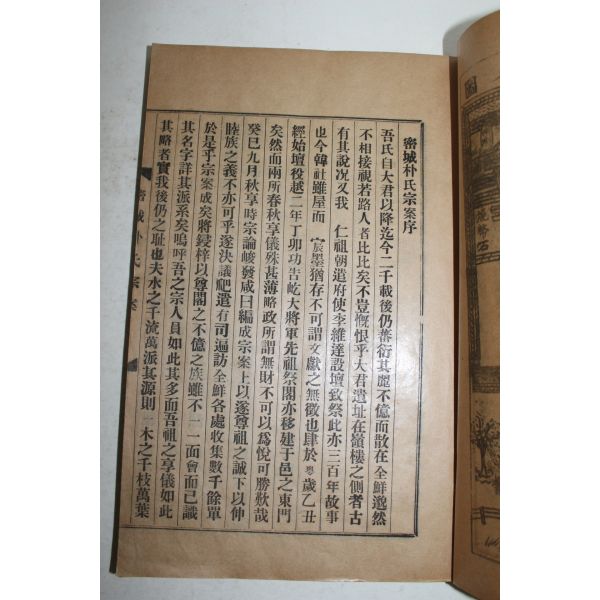 密城朴氏宗案序
吾氏自大君以降迄今二千載後仍蕃衍其麗不億而散在全鮮邈然
不相接視若路人者比比矣不豈慨恨乎大君遺址在嶺樓之側者古
有其說况又我 仁祖朝遣府使李維達設壇致祭此亦三百年故事
也今韓社雖屋而 宸墨猶存不可謂文獻之無徵也肆於粤歲乙丑
經始壇役越二年丁卯功告屹大將軍先祖祭閣亦移建于邑之東門
矣然而兩所春秋享儀殊甚薄略政所謂無財不可以爲悅可勝歎哉
癸巳九月秋享時宗論峻發咸曰編成宗案上以遂尊祖之誠下以伸
睦族之義不亦可乎遂決議爬遣有司遍訪全鮮各處收集數千餘單
於是乎宗案成矣將鋟梓以尊閣之不億之族雖不一一面會而已識
其名字詳其派系矣嗚呼吾之宗人員如此其多而吾祖之享儀如此
其略者實我後仍之耻也夫水之千流萬派其源則一木之千枝萬葉
密城朴氏宗案